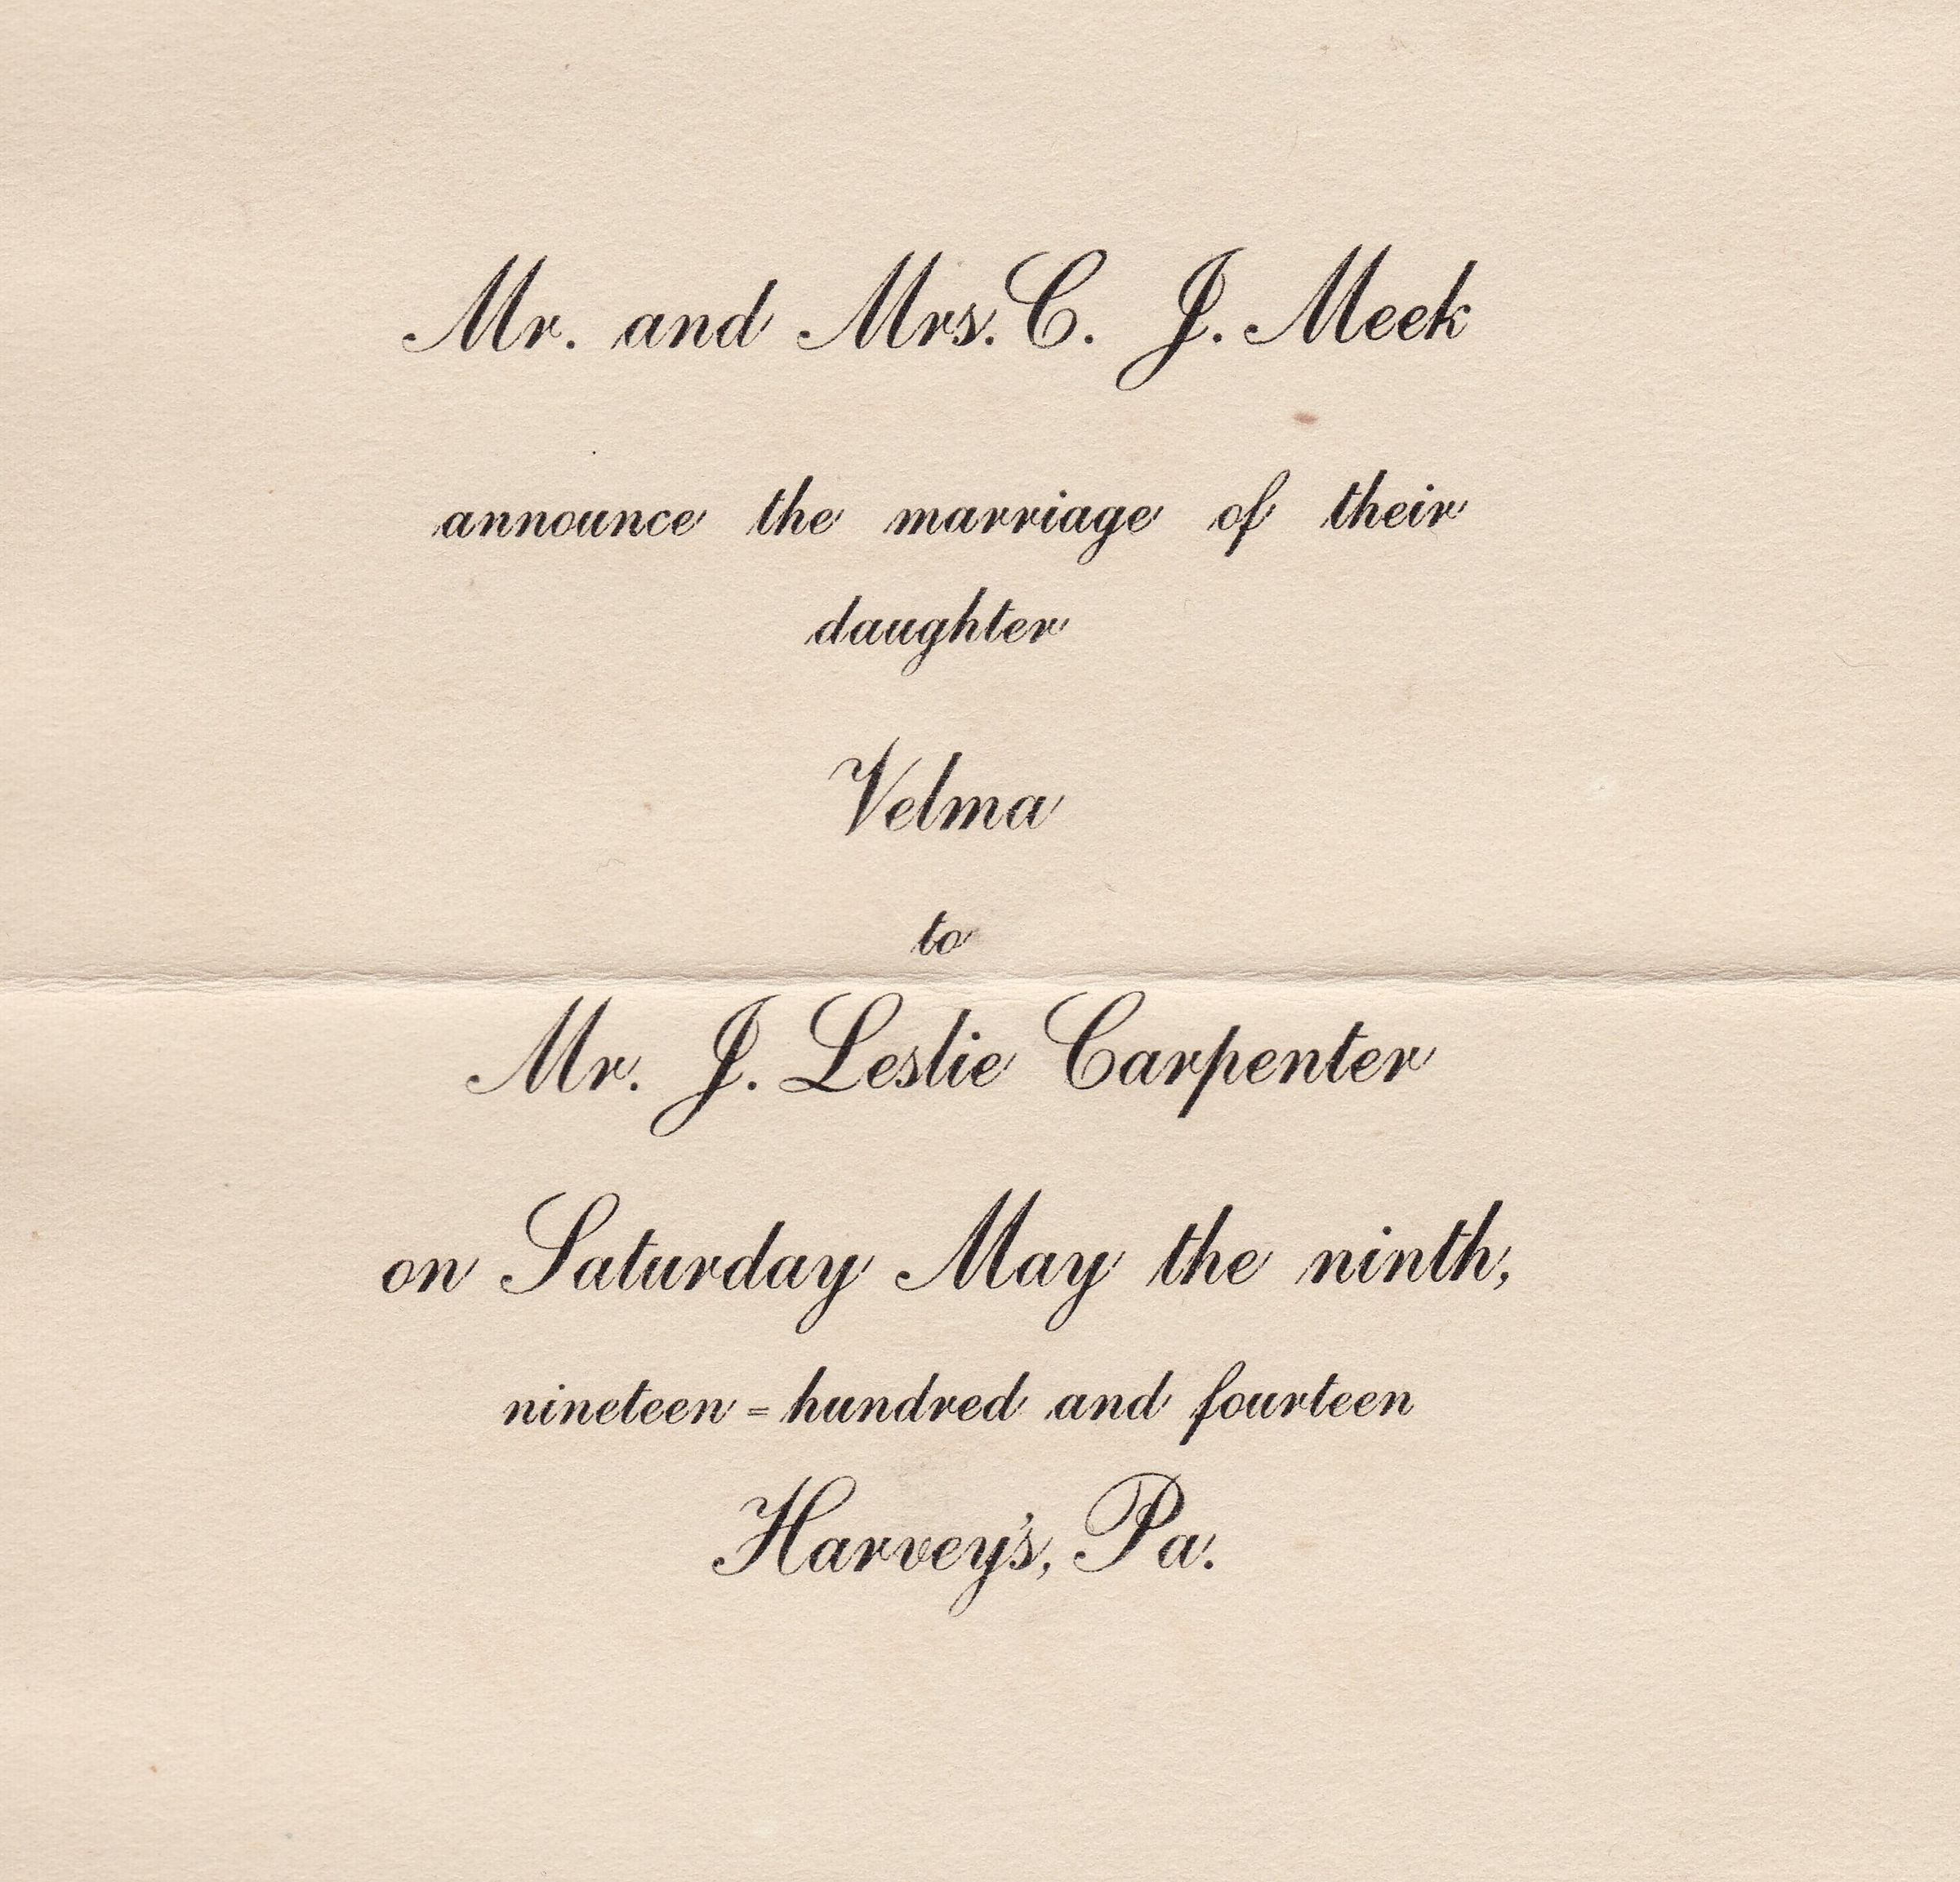 Mr. and Mrs. C. J. Meek
announce the marriage of their
daughter
Velma
to
Mr. J. Leslie Carpenter
on Saturday May the ninth,
nineteen=hundred and fourteen
Harvey's, Pa.